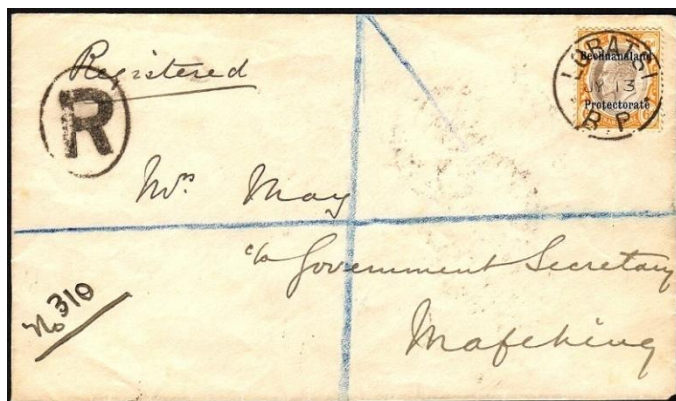 Registered
R
LOBATSI
JY 13
B.P.
Bechuanaland
Protectorate
Mrs. May
c/o Government Secretary
Mafeking
No 310